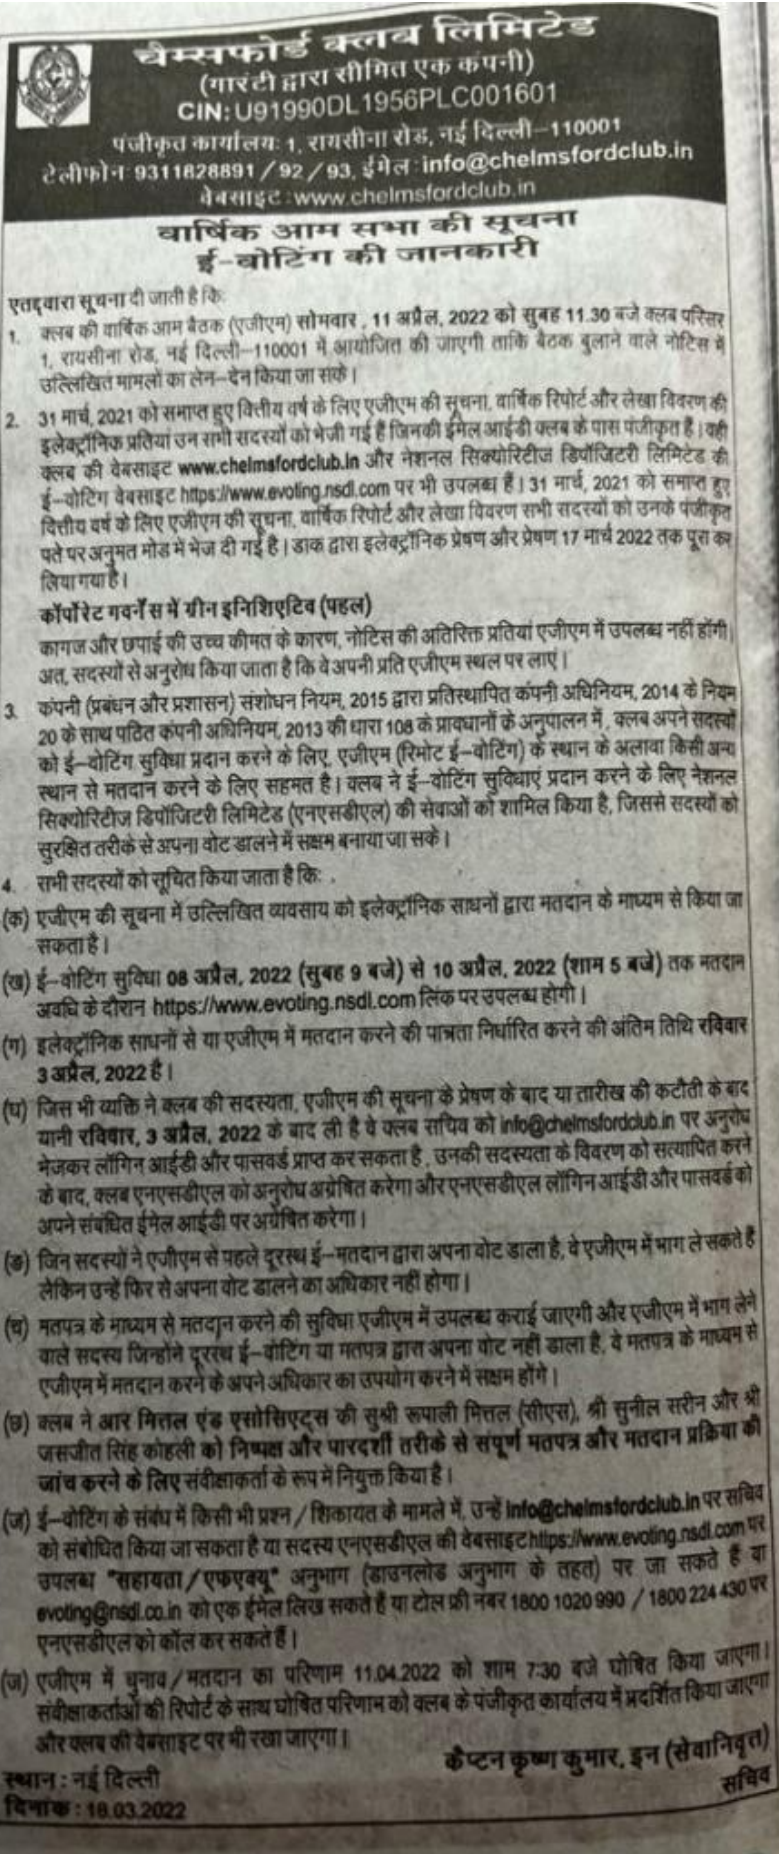 चैम्सफोर्ड क्लब लिमिटेड
(गारंटी द्वारा सीमित एक कंपनी)
CIN: U91990DL1956PLC001601
पंजीकृत कार्यालय: 1, रायसीना रोड, नई दिल्ली-110001
टेलीफोन 9311828891/92/93, ईमेल: info@chelmsfordclub.in
वेबसाइट: www.chelmsfordclub.in
वार्षिक आम सभा की सूचना
ई-वोटिंग की जानकारी
एतद्द्वारा सूचना दी जाती है कि:
1. क्लब की वार्षिक आम बैठक (एजीएम) सोमवार, 11 अप्रैल, 2022 को सुबह 11.30 बजे क्लब परिसर
1, रायसीना रोड, नई दिल्ली-110001 में आयोजित की जाएगी ताकि बैठक बुलाने वाले नोटिस में
उल्लिखित मामलों का लेन-देन किया जा सके।
2. 31 मार्च, 2021 को समाप्त हुए वित्तीय वर्ष के लिए एजीएम की सूचना, वार्षिक रिपोर्ट और लेखा विवरण की
इलेक्ट्रॉनिक प्रतियां उन सभी सदस्यों को भेजी गई हैं जिनकी ईमेल आईडी क्लब के पास पंजीकृत हैं। वही
क्लब की वेबसाइट www.chelmsfordclub.in और नेशनल सिक्योरिटीज डिपॉजिटरी लिमिटेड की
ई-वोटिंग वेबसाइट https://www.evoting.nsdl.com पर भी उपलब्ध हैं। 31 मार्च, 2021 को समाप्त हुए
वित्तीय वर्ष के लिए एजीएम की सूचना, वार्षिक रिपोर्ट और लेखा विवरण सभी सदस्यों को उनके पंजीकृत
पते पर अनुमत मोड में भेज दी गई है। डाक द्वारा इलेक्ट्रॉनिक प्रेषण और प्रेषण 17 मार्च 2022 तक पूरा कर
लिया गया है।
कॉर्पोरेट गवर्नेंस में ग्रीन इनिशिएटिव (पहल)
कागज और छपाई की उच्च कीमत के कारण, नोटिस की अतिरिक्त प्रतियां एजीएम में उपलब्ध नहीं होंगी।
अत, सदस्यों से अनुरोध किया जाता है कि वे अपनी प्रति एजीएम स्थल पर लाएं।
3. कंपनी (प्रबंधन और प्रशासन) संशोधन नियम, 2015 द्वारा प्रतिस्थापित कंपनी अधिनियम, 2014 के नियम
20 के साथ पठित कंपनी अधिनियम, 2013 की धारा 108 के प्रावधानों के अनुपालन में, क्लब अपने सदस्यों
को ई-वोटिंग सुविधा प्रदान करने के लिए, एजीएम (रिमोट ई-वोटिंग) के स्थान के अलावा किसी अन्य
स्थान से मतदान करने के लिए सहमत है। क्लब ने ई-वोटिंग सुविधाएं प्रदान करने के लिए नेशनल
सिक्योरिटीज डिपॉजिटरी लिमिटेड (एनएसडीएल) की सेवाओं को शामिल किया है, जिससे सदस्यों को
सुरक्षित तरीके से अपना वोट डालने में सक्षम बनाया जा सके।
4. सभी सदस्यों को सूचित किया जाता है कि:
(क) एजीएम की सूचना में उल्लिखित व्यवसाय को इलेक्ट्रॉनिक साधनों द्वारा मतदान के माध्यम से किया जा
सकता है।
(ख) ई-वोटिंग सुविधा 08 अप्रैल, 2022 (सुबह 9 बजे) से 10 अप्रैल, 2022 (शाम 5 बजे) तक मतदान
अवधि के दौरान https://www.evoting.nsdl.com लिंक पर उपलब्ध होगी।
(ग) इलेक्ट्रॉनिक साधनों से या एजीएम में मतदान करने की पात्रता निर्धारित करने की अंतिम तिथि रविवार
3 अप्रैल, 2022 है।
(घ) जिस भी व्यक्ति ने क्लब की सदस्यता, एजीएम की सूचना के प्रेषण के बाद या तारीख की कटौती के बाद
यानी रविवार, 3 अप्रैल, 2022 के बाद ली है वे क्लब सचिव को info@chelmsfordclub.in पर अनुरोध
भेजकर लॉगिन आईडी और पासवर्ड प्राप्त कर सकता है, उनकी सदस्यता के विवरण को सत्यापित करने
के बाद, क्लब एनएसडीएल को अनुरोध अग्रेषित करेगा और एनएसडीएल लॉगिन आईडी और पासवर्ड को
अपने संबंधित ईमेल आईडी पर अग्रेषित करेगा।
(ङ) जिन सदस्यों ने एजीएम से पहले दूरस्थ ई-मतदान द्वारा अपना वोट डाला है, वे एजीएम में भाग ले सकते हैं
लेकिन उन्हें फिर से अपना वोट डालने का अधिकार नहीं होगा।
(च) मतपत्र के माध्यम से मतदान करने की सुविधा एजीएम में उपलब्ध कराई जाएगी और एजीएम में भाग लेने
वाले सदस्य जिन्होंने दूरस्थ ई-वोटिंग या मतपत्र द्वारा अपना वोट नहीं डाला है, वे मतपत्र के माध्यम से
एजीएम में मतदान करने के अपने अधिकार का उपयोग करने में सक्षम होंगे।
(छ) क्लब ने आर मित्तल एंड एसोसिएट्स की सुश्री रूपाली मित्तल (सीएस), श्री सुनील सरीन और श्री
जसजीत सिंह कोहली को निष्पक्ष और पारदर्शी तरीके से संपूर्ण मतपत्र और मतदान प्रक्रिया की
जांच करने के लिए संवीक्षाकर्ता के रूप में नियुक्त किया है।
(ज) ई-वोटिंग के संबंध में किसी भी प्रश्न/शिकायत के मामले में, उन्हें info@chelmsfordclub.in पर सचिव
को संबोधित किया जा सकता है या सदस्य एनएसडीएल की वेबसाइट https://www.evoting.nsdl.com पर
उपलब्ध "सहायता/एफएक्यू" अनुभाग (डाउनलोड अनुभाग के तहत) पर जा सकते हैं या
evoting@nsdl.co.in को एक ईमेल लिख सकते हैं या टोल फ्री नंबर 1800 1020 990 / 1800 224 430 पर
एनएसडीएल को कॉल कर सकते हैं।
(ज) एजीएम में चुनाव/मतदान का परिणाम 11.04.2022 को शाम 7:30 बजे घोषित किया जाएगा।
संवीक्षाकर्ताओं की रिपोर्ट के साथ घोषित परिणाम को क्लब के पंजीकृत कार्यालय में प्रदर्शित किया जाएगा
और क्लब की वेबसाइट पर भी रखा जाएगा।
कैप्टन कृष्ण कुमार, इन (सेवानिवृत)
सचिव
स्थान: नई दिल्ली
दिनांक: 18.03.2022